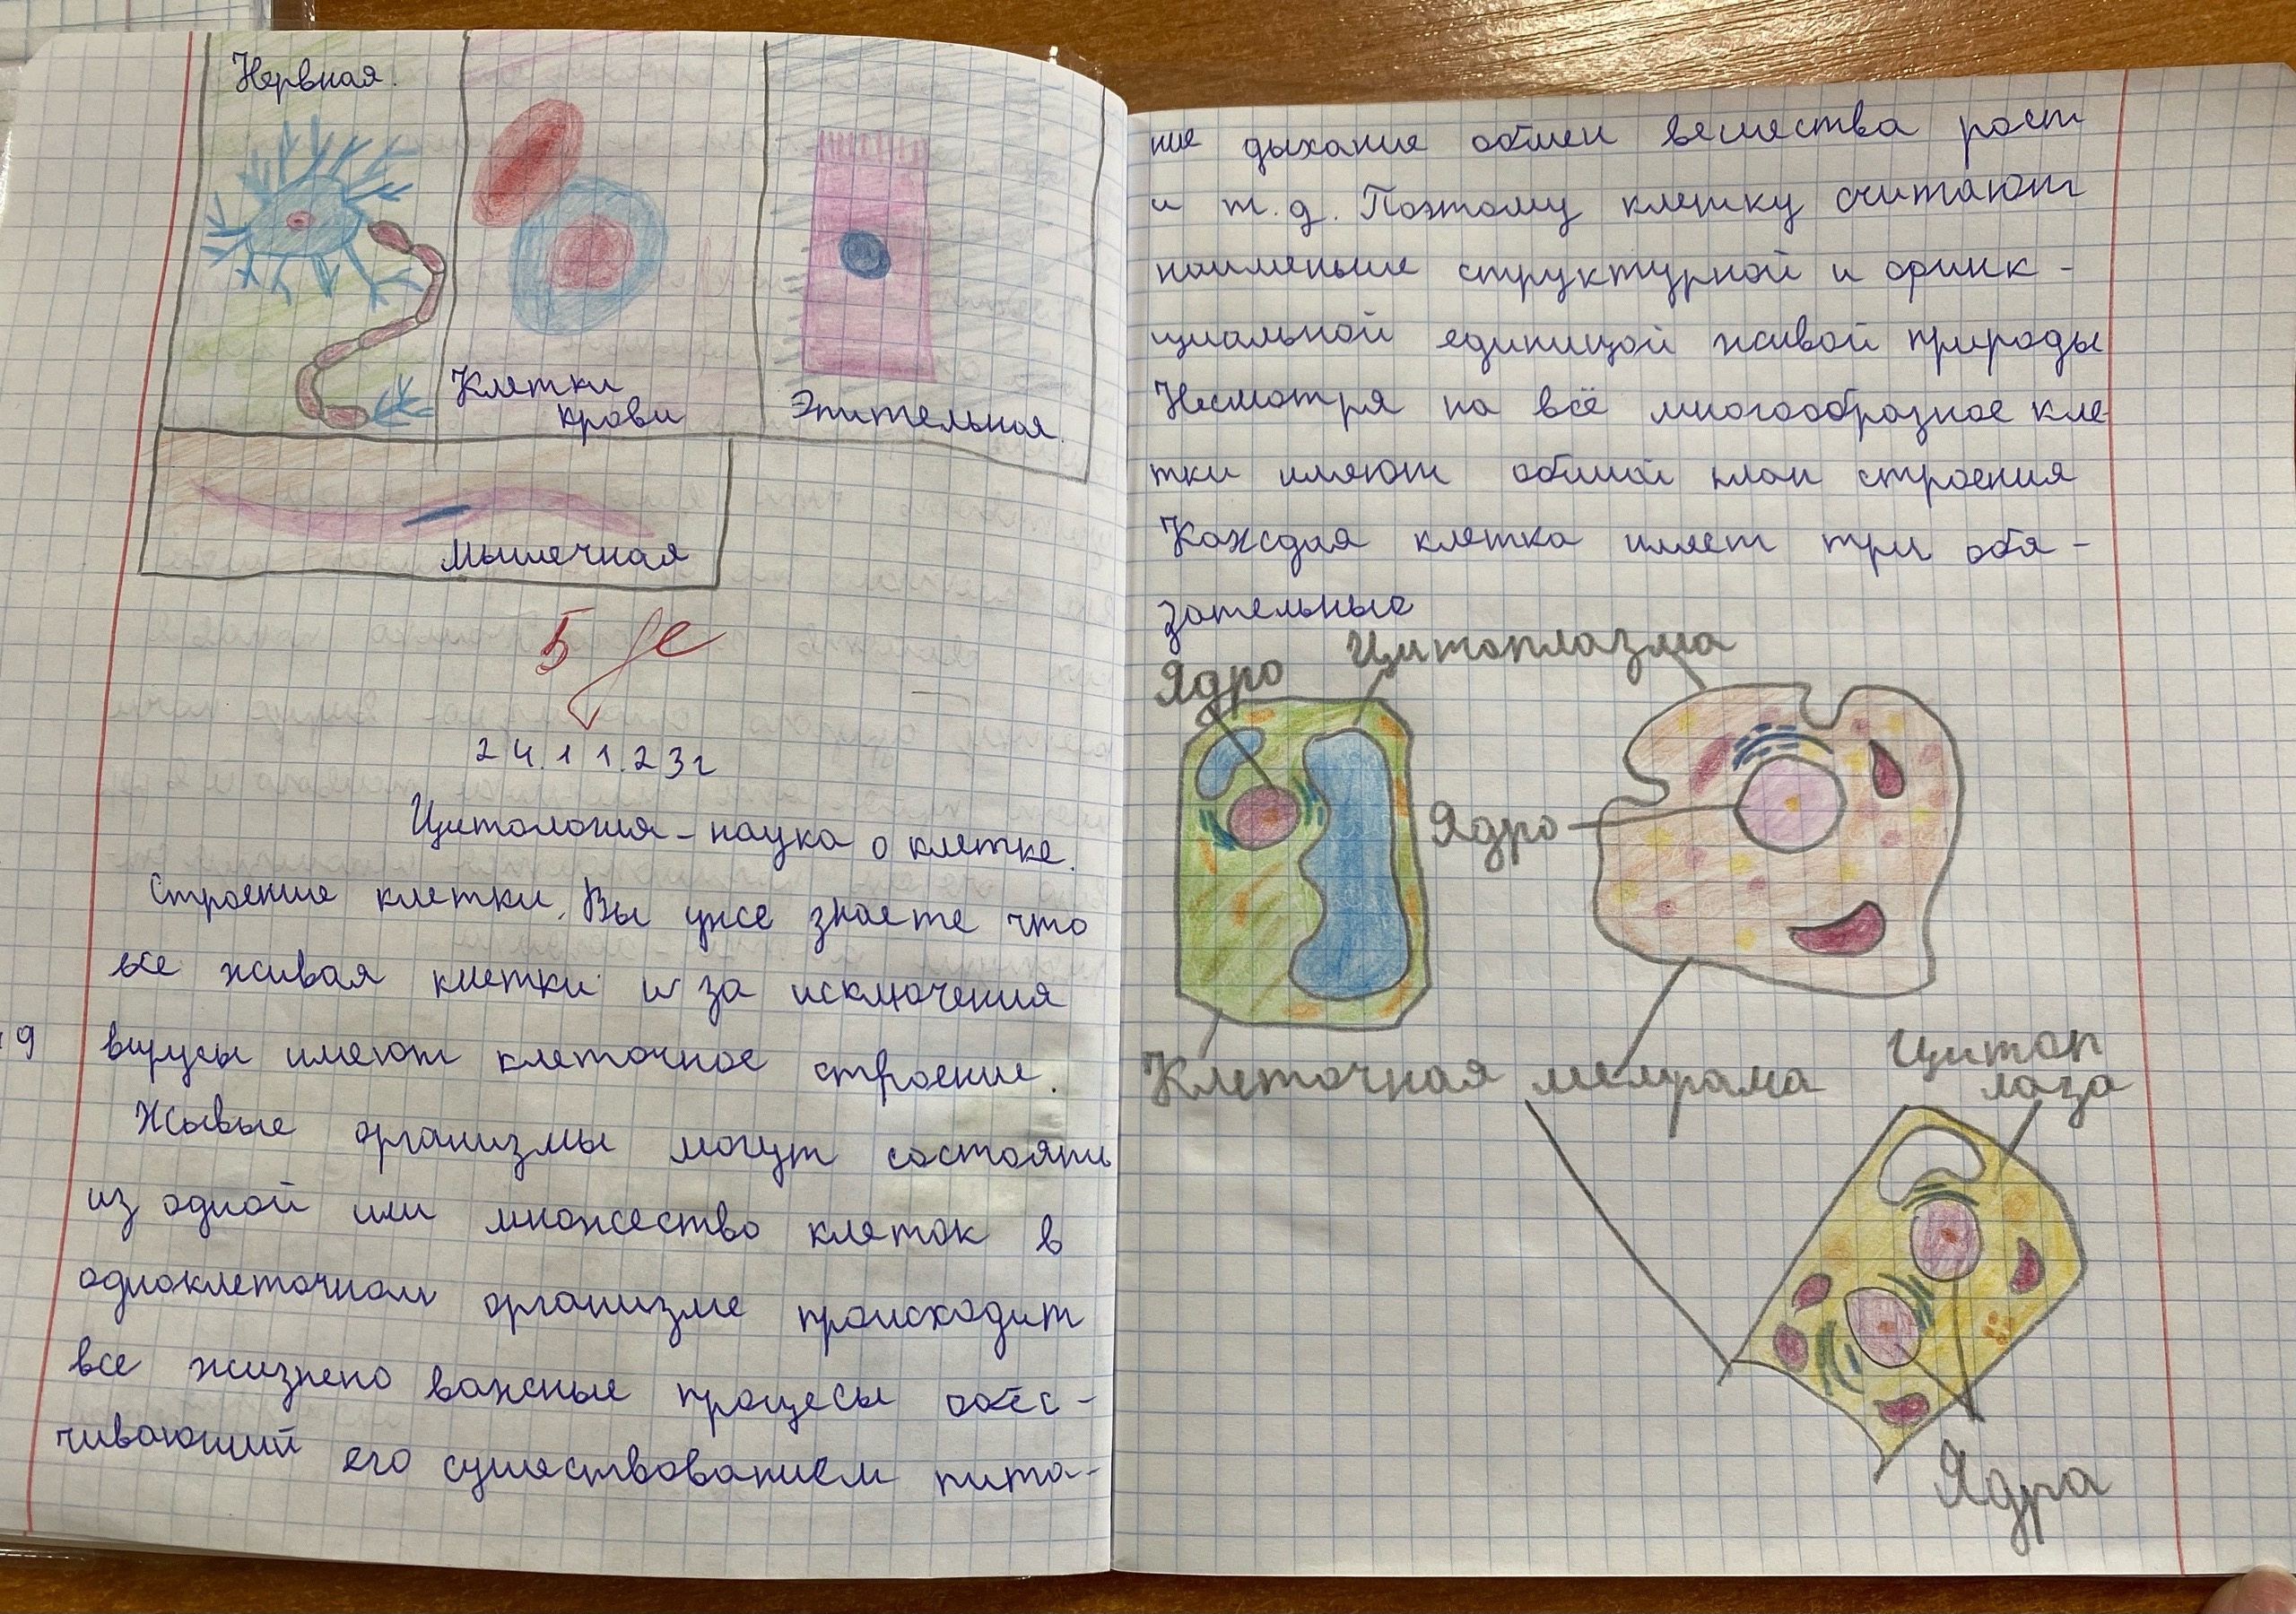 Нервная.
Клетки
крови
Эпительная.
мышечная
5
24.11.23г
Цитология - наука о клетке.
Строение клетки. Вы уже знаете что
все живая клетки и за исключения
9
вирусы имеют клеточное строение.
Жывые организмы могут состоять
из одной или множество клеток в
одноклеточном организме происходит
все жизнено важные процесы обес-
чивающий его существованием пита-
ние дыхание обмен вещества рост
и т.д. Поэтому клетку считают
наименьше структурной и финк-
циальной единицой живой природы
Несмотря на всё многообразное кле
тки имяют общий план строения
Каждая клетка имяет три обя-
зательные
Ядро
Цитоплазма
Ядро
Клеточная мемрама
Цитоп
лаза
Ядра